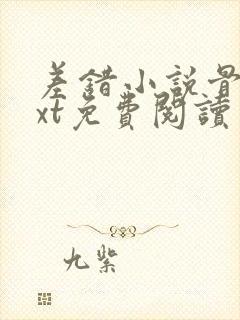 差錯小說骨
xt免費閱讀
九紫